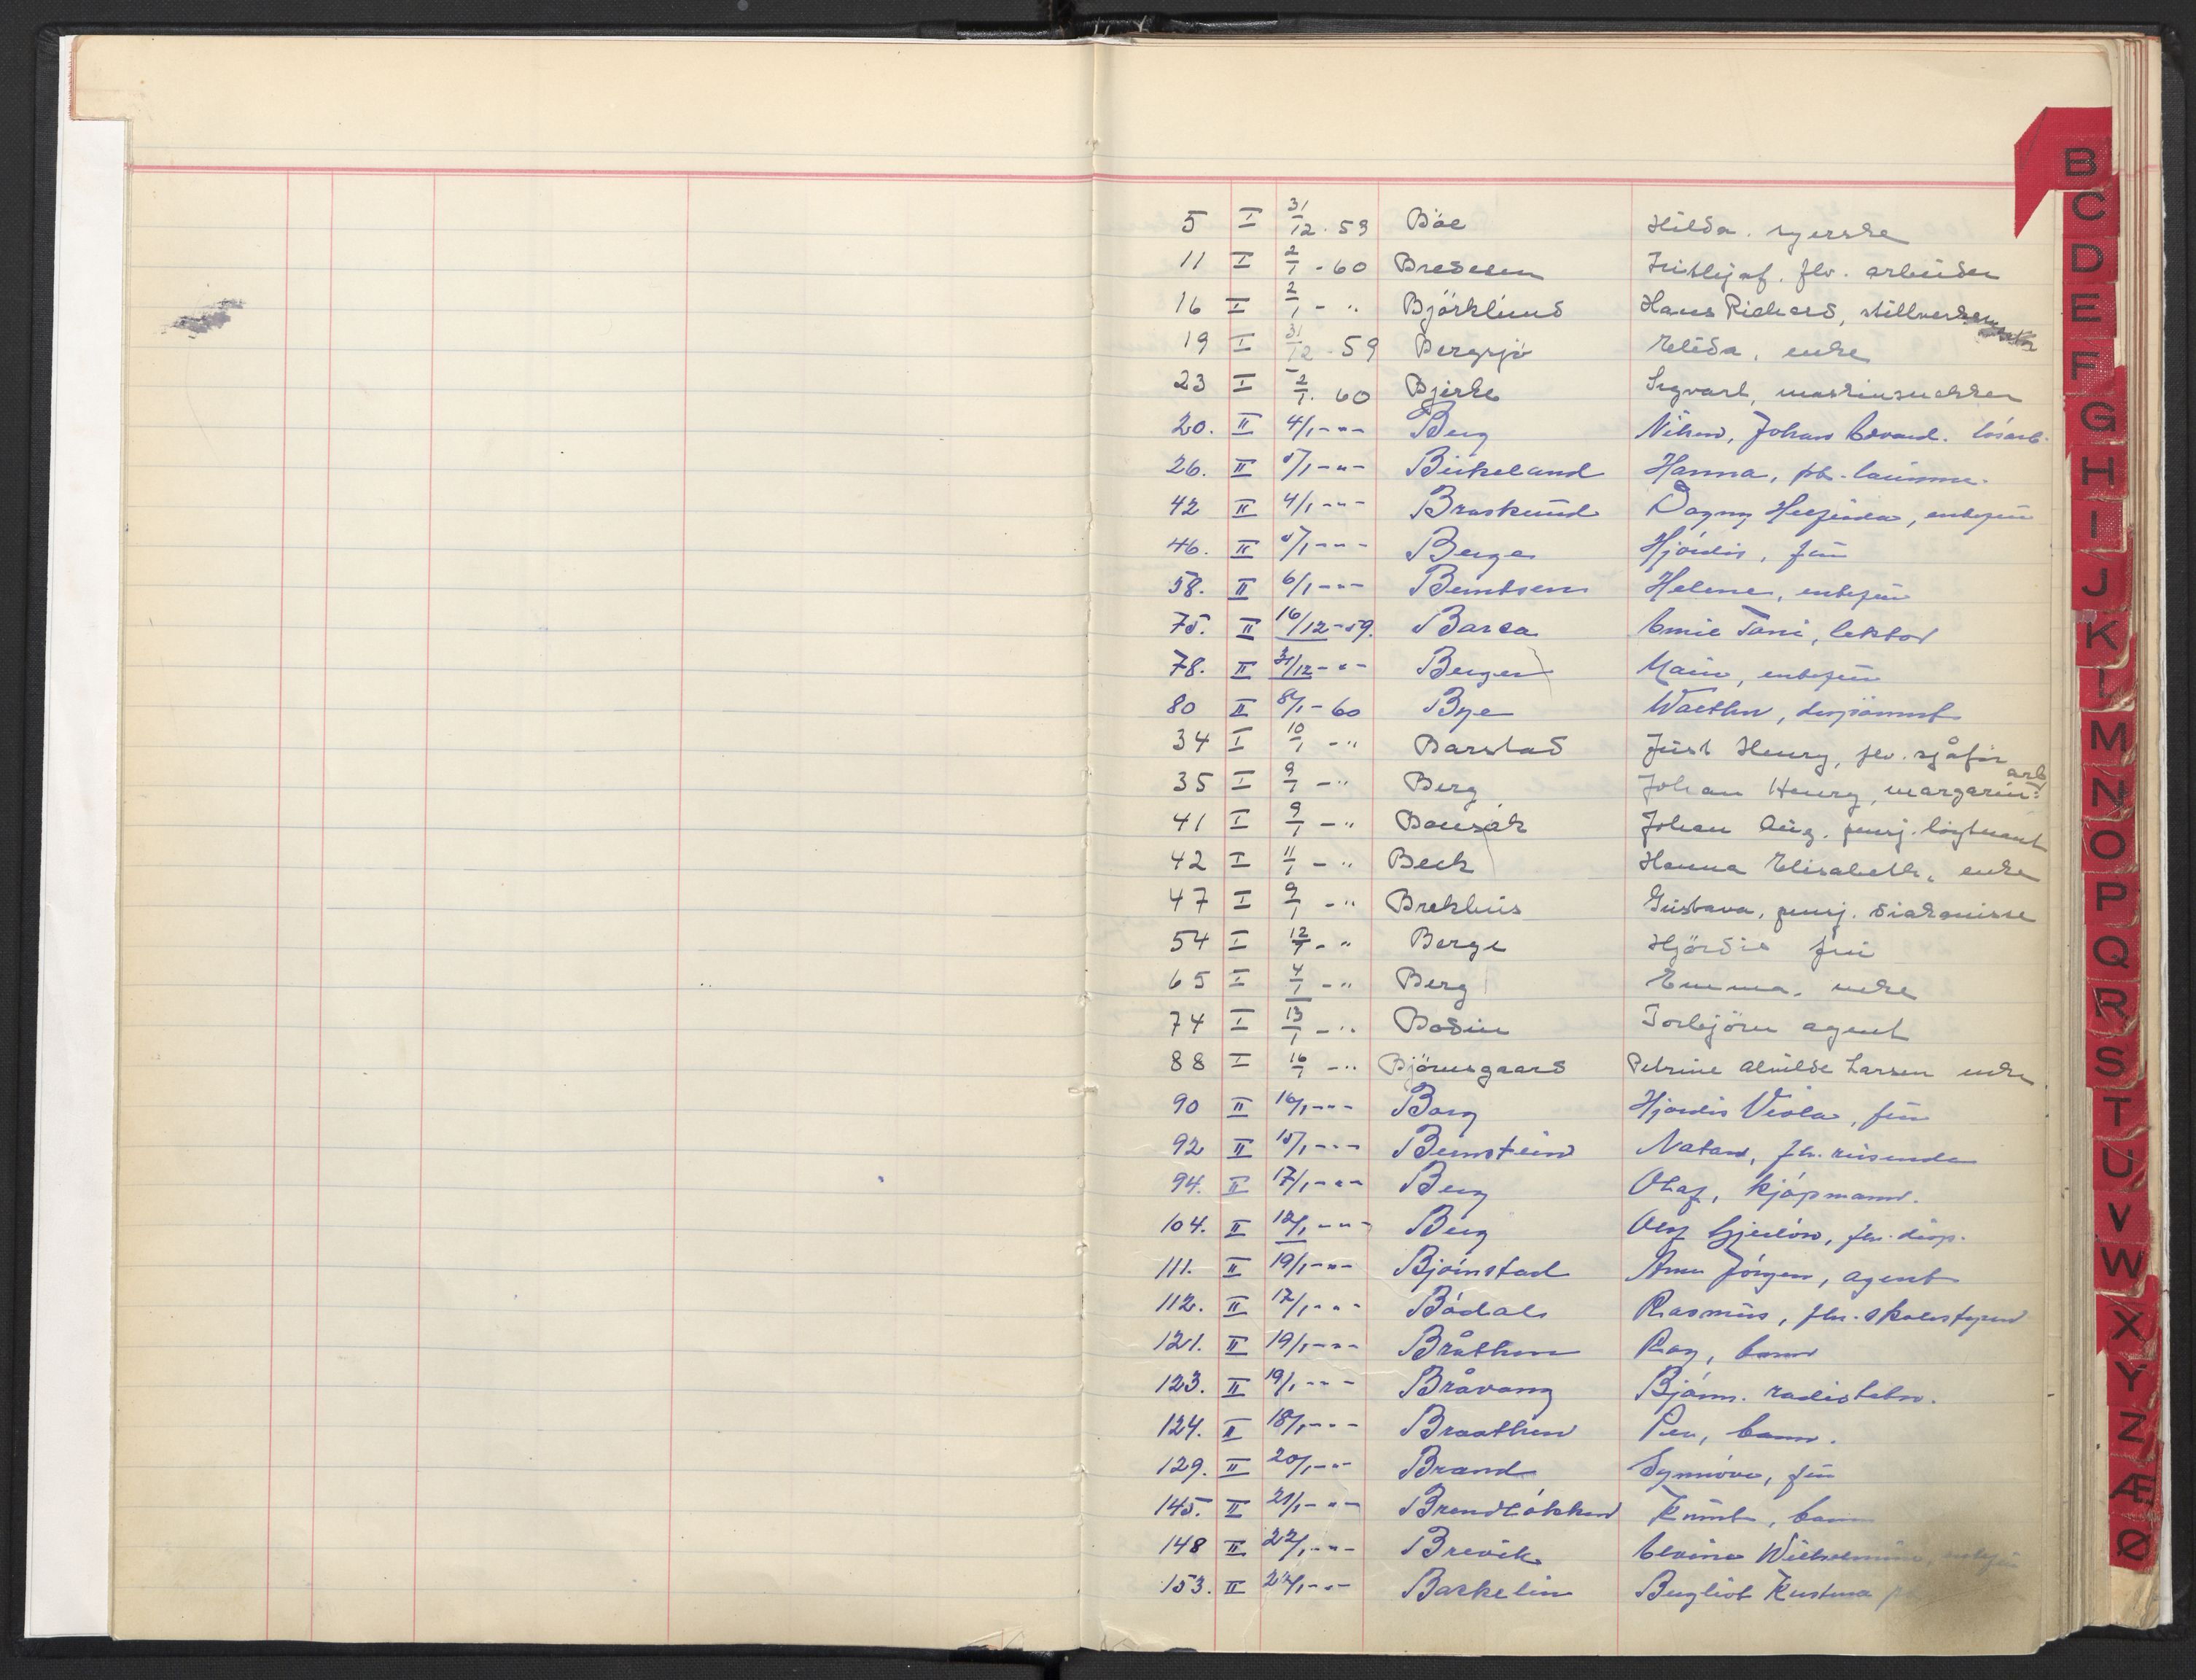 5 I 31/12 . 59 Böe Hilda . syerske
11 I 2/1 - 60 Bredesen Fritbjof . flv. arbeider
16 I 2/1 - " Björklund Hans Richard, stillverksmontör
19 I 31/12 - 59 Bergsjö Elida, enke
23 I 2/1 . 60 Bjerke Sigvart, maskinsnekker
20. II 4/1 - " - Berg Nihus, Johan Edvard. løsarb.
26. II 5/1 - " - Birkeland Hanna, pb.
42 II 4/1 - " - Braskerud Dagny Helfrida, enkefrü
46. II 5/1 - " - Berge Hjördis, frü
58. II 6/1 - " - Berntsen Helene, enkefrü
75. II 16/12 - 59. Barca Emil Tani, lektor
78. II 31/12 - " - Berger Marie, enkefrü
80 II 8/1 - 60 Bye Walther, disponent
34 I 10/1 - " Barstad Just Henry, flv. sjåför
35 I 9/1 - " Berg Johan Henry, margarin: arb
41 I 9/1 - " Bousak Johan Aug. pensj. løytnant
42 I 11/1 - " Beck Hanna Elisabeth, enke
47 I 9/1 - " Brekhüs Güstava, pensj. diakonisse
54 I 12/1 - " Berge Hjördis frü
65 I 4/1 - " Berg Emma. enke
74 I 13/1 - " Bodin Torbjörn agent
88 I 16/1 - " Björnsgaard Petrine Alvilde Larsen enke
90 II 16/1 - " - Borg Hjordis Viola, frü
92 II 15/1 - " - Bernstein Natan, flv. reisende
94. II 17/1 - " - Berg Olaf, kjöpmann.
104. II 18/1 - " - Berg Alf Gjerlöw, flv. disp.
111. II 19/1 - " - Björnstad Arne Jörgen, agent
112. II 17/1 - " - Bödal Rasmüs, flv. skolestyrer
121. II 19/1 - " - Bråthen Roy, barn
123. II 19/1 - " - Bråvang Björn. radiotekn.
124. II 18/1 - " - Braathen Per, barn.
129. II 20/1 - " - Brand Synnöve, frü
145. II 21/1 - " - Brendlökken Knüt, barn
148 II 22/1 - " - Brevik Elvine Wilhelmine, enkefrü
153. II 22/1 - " - Barkelin Bergliot Kristina
B
C
D
E
F
G
H
I
J
K
L
M
N
O
P
Q
R
S
T
U
V
W
X
Y
Z
Æ
Ø